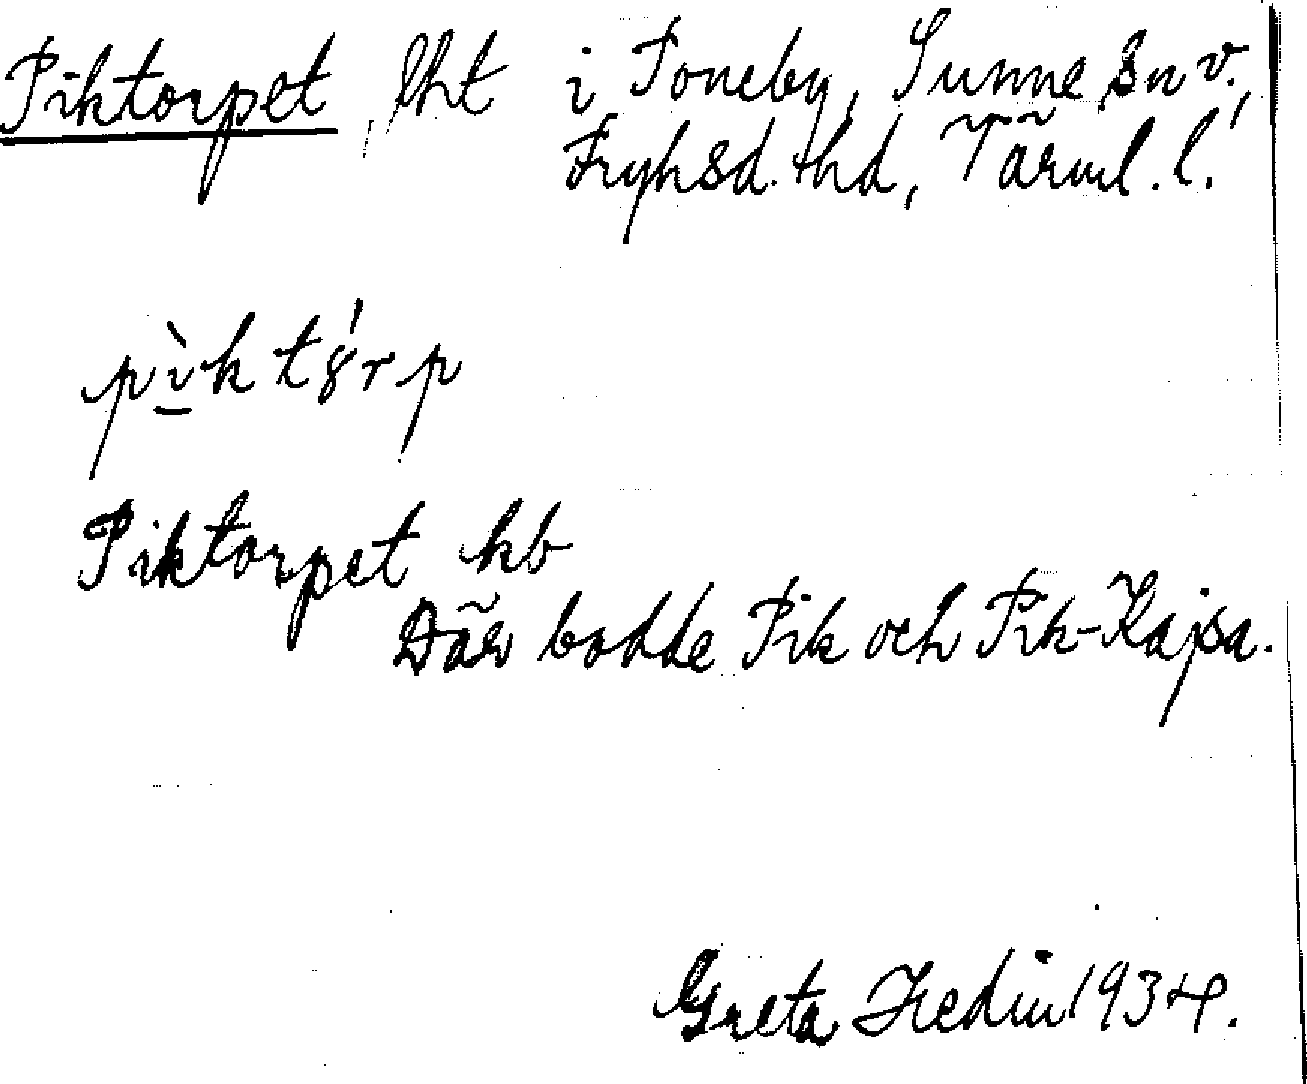 Piktorpet, lht i Toneby, Sunne sn v.,
Fryksd. hd, Värml. l.
pìktʹrp
Piktorpet kb
Där bodde Pik och Pik-Kajsa.
Greta Hedin 1934.